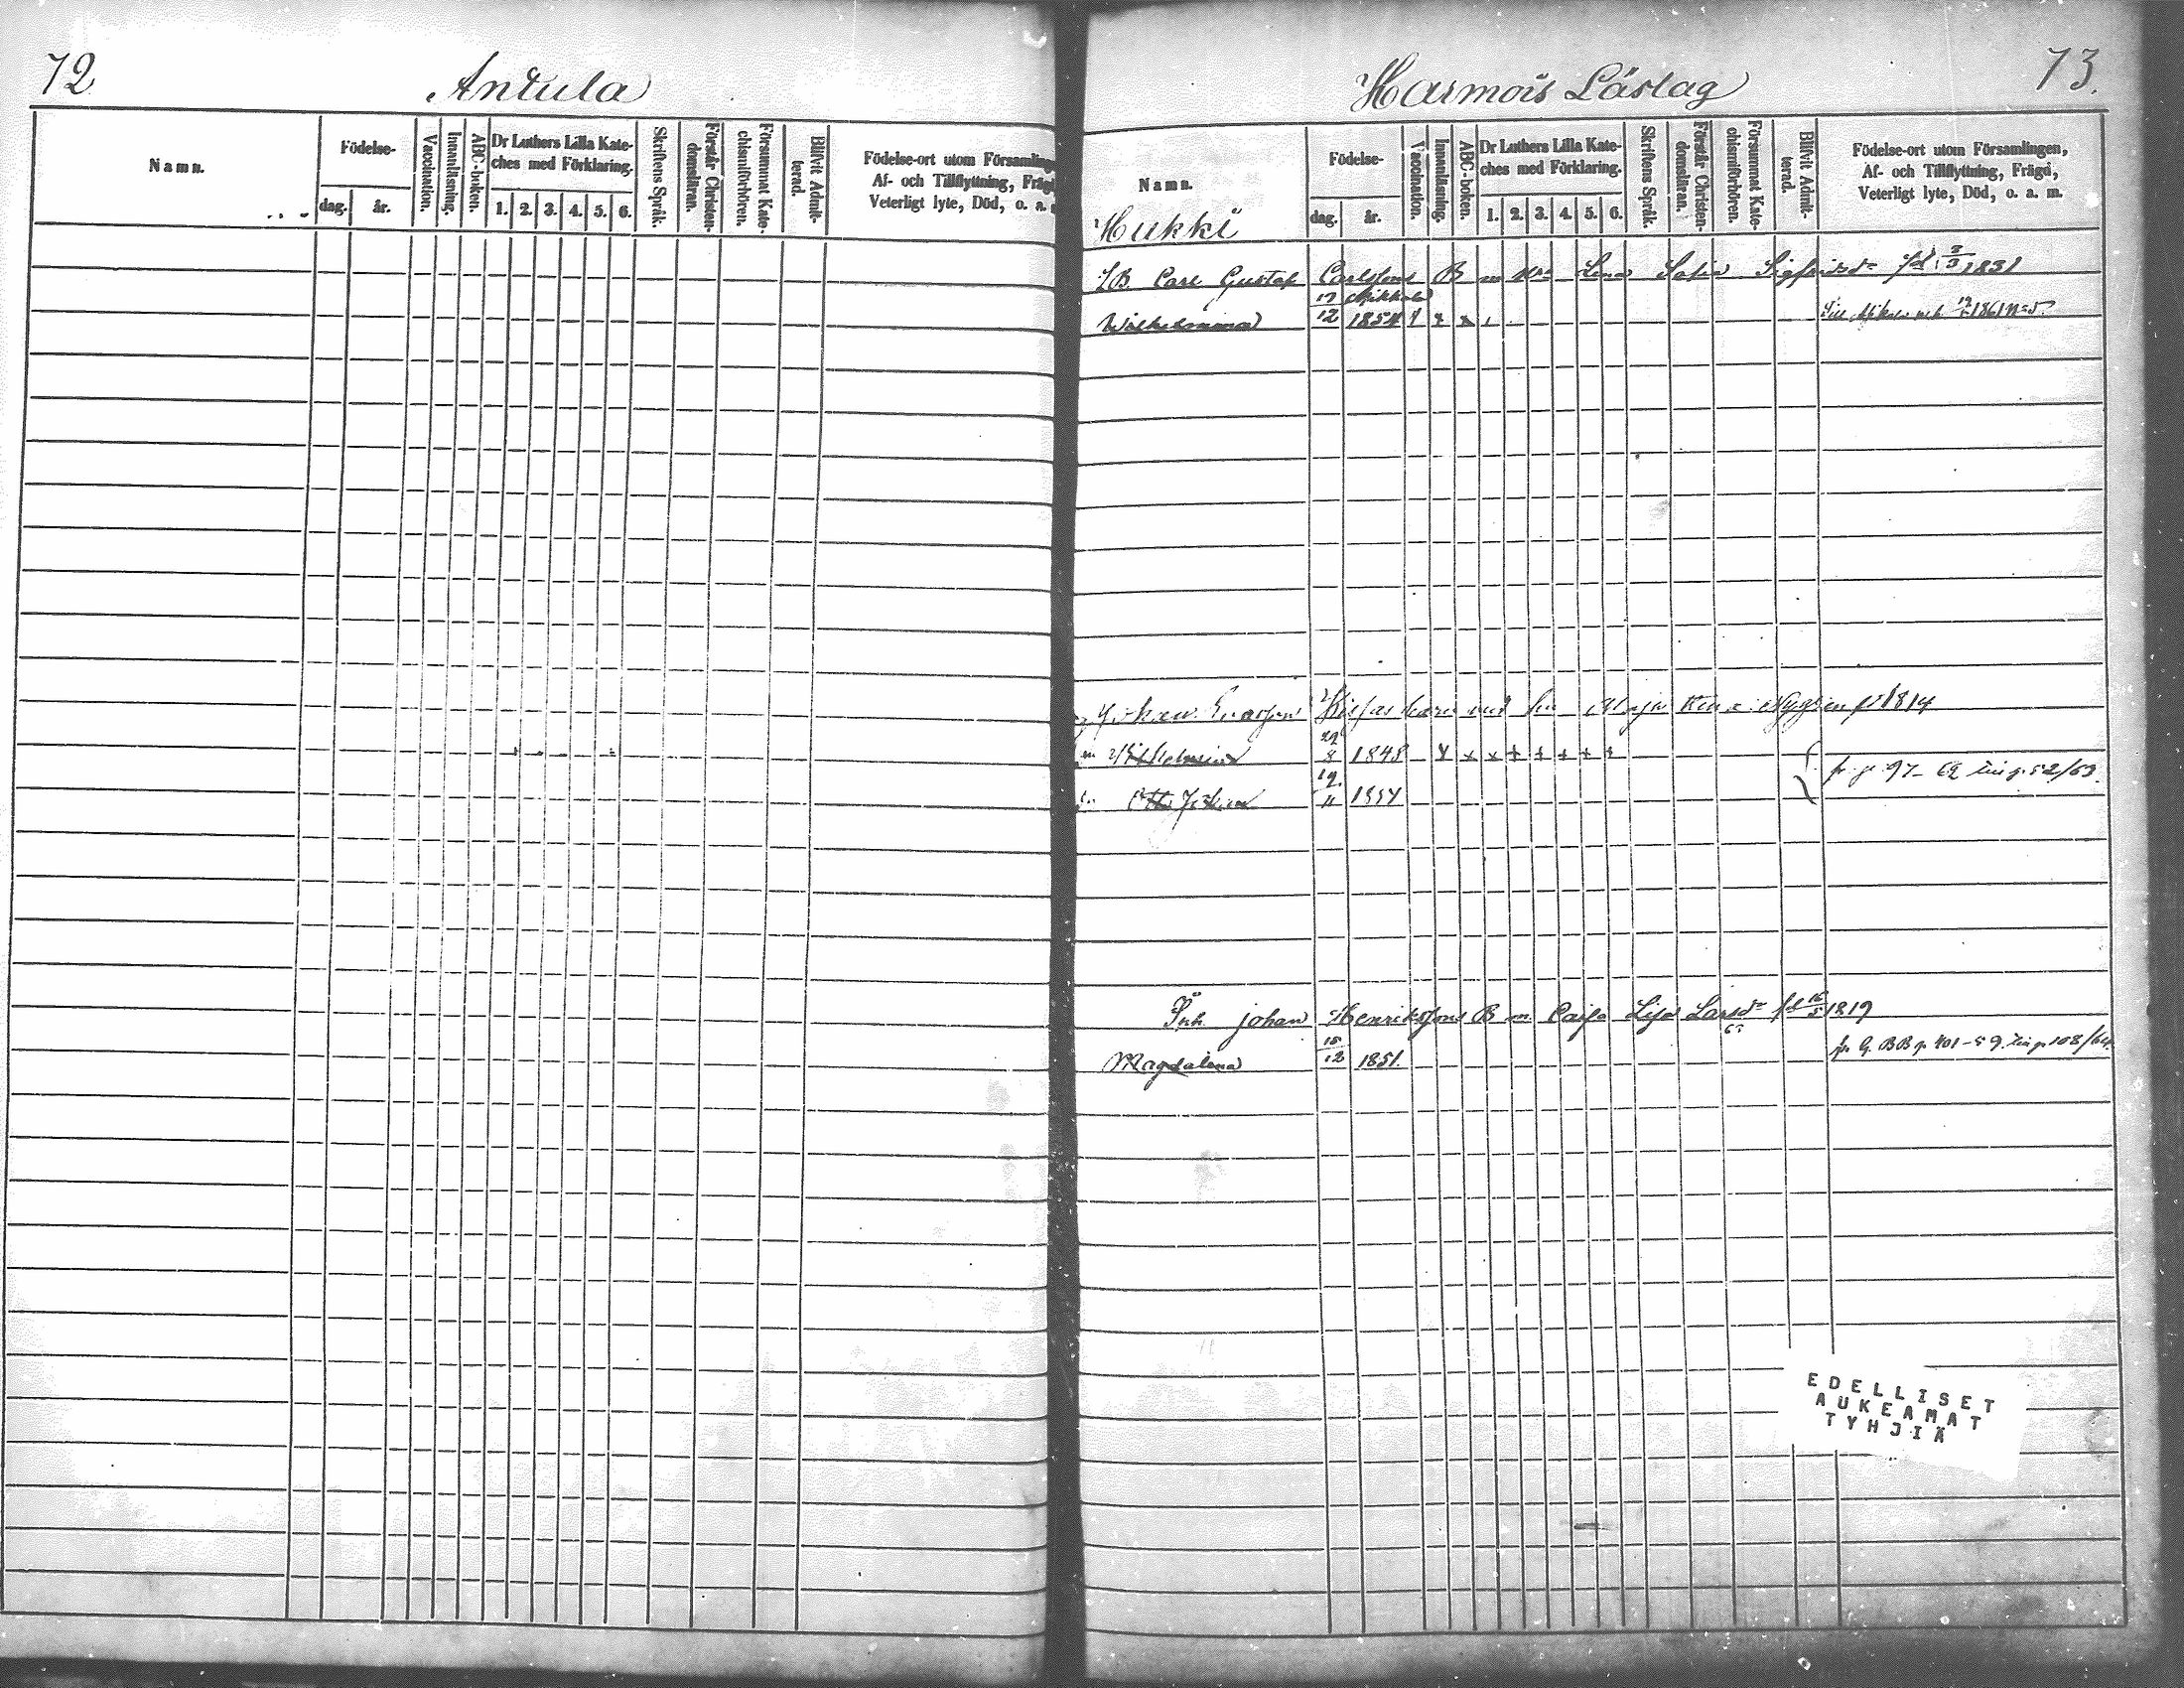 72
Antula
Namn.
Födelse-
dag.
år.
Vaccination.
Innanläsning.
ABC-boken.
Dr Luthers Lilla Kate-
ches med Förklaring.
1. 2. 3. 4. 5. 6.
Skriftens Språk.
Förstår Christen-
domsläran.
Försummat Kate-
chismiförhören.
Blifvit Admit-
terad.
Födelse-ort utom Församling
Af- och Tillflyttning, Fräg
Veterligt lyte, Död, o. a.
Harmois Läslag
73.
Namn.
Hukki
Födelse-
dag.
år.
Vaccination.
Innanläsning.
ABC-boken.
Dr Luthers Lilla Kate-
ches med Förklaring.
1. 2. 3. 4. 5. 6.
Skriftens Språk.
Förstår Christen-
domsläran.
Försummat Kate-
chismiförhören.
Blifvit Admit-
terad.
Födelse-ort utom Församlingen,
Af- och Tillflyttning, Frägd,
Veterligt lyte, Död, o. a. m.
Carl Gustaf Carlssons B m Lena Sofia Sigfridsdr 1831
Wilhelmina 12 1861
Johan 1814
Wilhelmina 8 1848 x x x + + + + +
Otto Johan 19/11 1854
fr. p. 97-62 52/63.
Inh. Johan Henrikssons B m Caisa Lisa Larsdr fd 16/5 1819
Magdalena 12 1851. fr. G. BB p. 401-59. 108/64.
EDELLISET
AUKEAMAT
TYHJIÄ